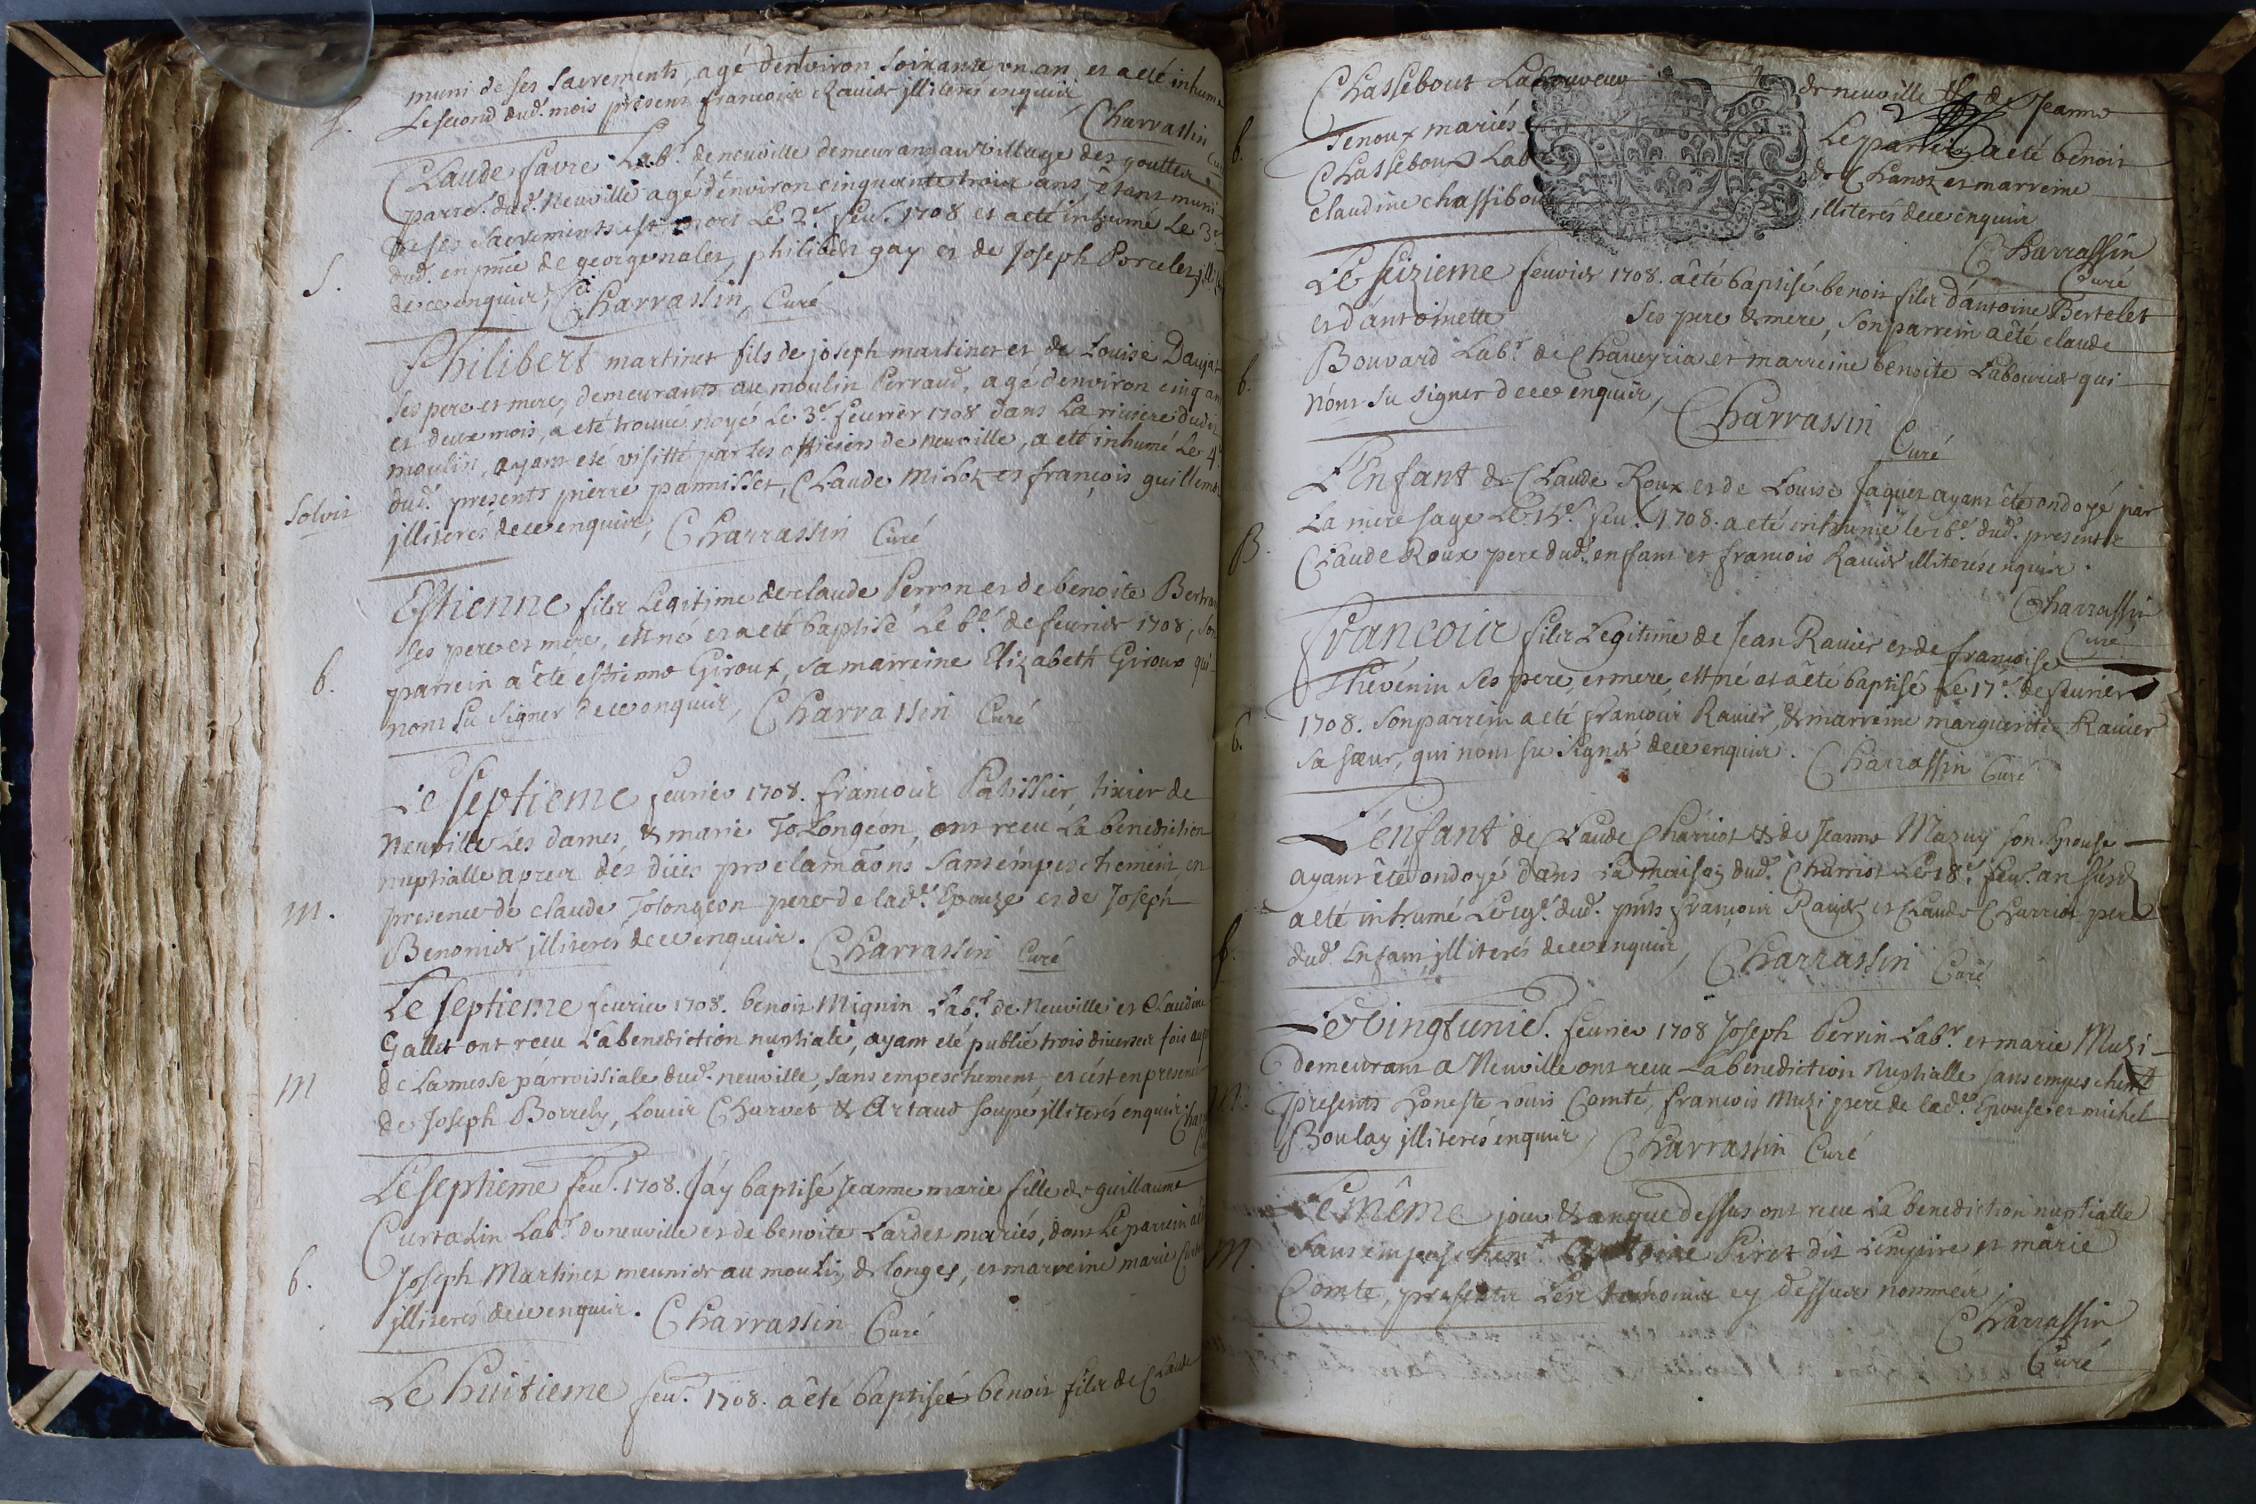 muni de ses sacrements, agé d'environ soixante un an, et a eté inhumé
Le second dud. mois présent francois Ravier illiterés enquis,
Charrassin
S.
Claude favre Labr. de neuville demeurant au village des gouttes
parre. dud. Neuville agé d'environ cinquante trois ans êtant muni
de ses sacrements est mort Le 2e. feu. 1708 et a eté inhumé Le 3e
dud. en pnce de george nalet, philibert gay et de Joseph Porcelet, ill
S.
de ce enquis, Charrassin, Curé
Philibert martinet fils de joseph martinet et de Louise Daujat
ses pere et mere, demeurants au moulin Perraud, agé d'environ cinq ans
et deux mois, a eté trouvé noyé Le 3e. feuvrier 1708 dans La riviere dudit
moulin, ayant eté visitté par les officiers de neuville, a eté inhumé Le 4e
dud. presents pierre pannisset, Claude Milot et françois guillemot
Solvit
illiterés de ce enquis, Charrassin Curé
Estienne fils Legitime de claude Perron et de benoite Bertran
ses pere et mere, est né et a eté baptisé Le 6e. de feurier 1708, son
parrein a êté estienne Giroux, sa marreine Elizabeth Giroux qui
b.
n'ont su signer de ce enquis, Charrassin Curé
Le septieme feurier 1708. francois Patissier, tixier de
Neuville Les dames, & marie Tolongeon, ont receu La benediction
nuptialle apres des dües proclamãons sans empeschement, en
presence de claude Tolongeon pere de lade. Epouze et de Joseph
m.
Benonier illiterés de ce enquis. Charrassin Curé
Le septieme feurier 1708. benoit Mignin Labr. de Neuville et Claudine
Gallet ont receu La benediction nuptiale, ayant eté publié trois diverses fois au
de La messe parroissiale dud. neuville, sans empeschement et c'est en presence
m
de Joseph Borrely, Louis Charvet & Artaud soupé illiterés enquis. Cha
Le septieme feu. 1708. J'ay baptisé Jeanne marie fille de guillaume
Curtalin Labr. de neuville et de benoite Lardet mariés, dont Le parrein
Joseph Martinet meunier au moulin de longes, et marreine marie
b.
illiterés de ce enquis. Charrassin Curé
Le huitieme feu. 1708. a êté baptisé benoit fils de Claude
Chassebout Laboureur de neuville & de Jeanne
b.
Tenoux mariés Le parrein a eté benoit
Chassebout Lab de Chanoz et marreine
claudine chassibout illiterés de ce enquis
Charrassin
Curé
Le seizieme feurier 1708. a êté baptisé benoit fils d'antoine Bertelet
et d'antoinette ses pere & mere, son parrein a êté claude
Bouvard Labr. de Chaveyria et marreine benoite Labourier qui
b.
n'ont su signer de ce enquis, Charrassin
Curé
L'Enfant de Claude Roux et de Louise Jaquet ayant êté ondoyé par
La mere sage Le 15e. feu. 1708. a eté inhumé le 16e. dud. presents
B.
Claude Roux pere dud. enfant et francois Ravier illiterés enquis.
Charrassin
Curé
Francois fils Legitime de Jean Ravier et de françoise
Thévenin ses pere et mere, est né et a êté baptisé Le 17e. de feurier
b.
1708. son parrein a eté francois Ravier, & marreine marguerite Ravier
sa sœur, qui n'ont su signer de ce enquis. Charrassin Curé
L'enfant de Claude Charriot & de Jeanne Mazuy son Epouse
ayant êté ondoyé dans La maison dud. Charriot Le 18e. feu. an susd
a eté inhumé Le 19e. dud. pnts françois Ravier et Claude Charriot pere
S.
dud. Enfant illiterés de ce enquis, Charrassin Curé
Le vingtunie. feurier 1708 Joseph Perrin Labr. et marie Muzi
demeurant a Neuville ont receu La benediction Nuptialle sans empeschent
m.
presents honeste Louis Comte, francois Muzi pere de lade. Epouse et michel
Boulay illiterés enquis, Charrassin Curé
Le même jour & an que dessus ont receu La benediction nuptialle
m.
sans empeschemt. Antoine Piret dit L'empire et marie
Comte, presents Les temoins cy dessus nommés,
Charrassin
Curé